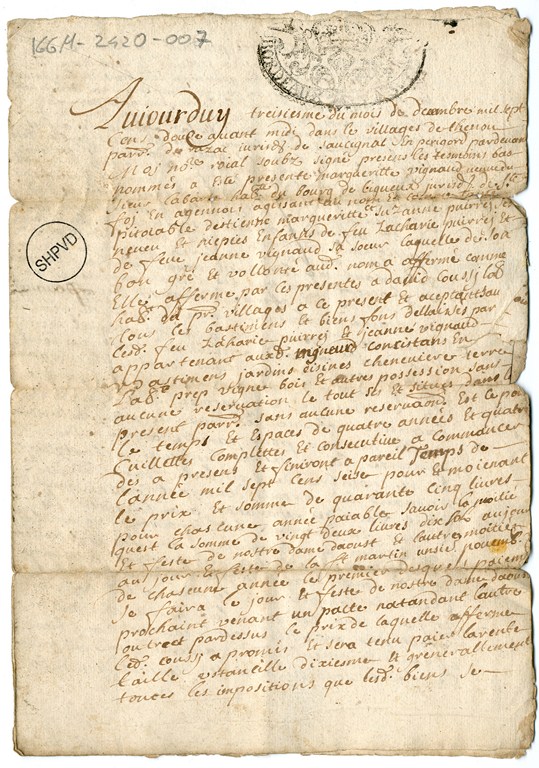 166H-2420-007
BORDEAUX
SHPVD
Aujourduy treisiesme du mois de decembre mil sept
Cens douse avant midi dans le villages de thenou
parr. du razac jurisd. de saucignat En perigord pardevant
Moj no.re roial soubz signé presens les temoins bas
nommés a Esté presente margueritte vignaud
sieur labarte du bourg de
foj En agennois agissant au nom et comme
pitoiable destienne margueritte Suzanne puirrej
neveu et niepces Enfants de feu Zacharie puirrej Et
de feue jeanne vignaud sa soeur laquelle de son
bon gré et vollonté aud. nom a affermé comme
Elle afferme par ces presentes a david coussj lab.
hab. du pr. villages a ce present et aceptant sau
tous les bastimens et biens fons dellaissés par
led. feu Zaharie puirrej et jeanne vignaud
appartenant auxd. mineurs concistans En
bastimens jardins aisines cheneviere terre
lab. prep vigne bois et autres possession sans
aucune reservation le tout sis et situés dans la
present parr. sans aucune reservaõn Est ce po
le temps et Espaces de quatre années et quatre
Cuilletes complettes et consecutive a commancer
dés a present et finiront a pareil temps de
l'année mil sept cens seise pour et moienant
le prix et somme de quarante cinq livres
pour chascune année paiable savoir la moitié
quest la somme de vingt deux livres dix s. aujour
et feste de nostre dame daoust et lautre moitiés
au jour et feste de la s.t martin
de chascune année le premier desquels paiem
se faira le jour et feste de nostre dame daou
prochaint venant un pacte natandant lautre
outre et pardessus le prix de laquelle afferme
led. coussj a promis et sera tenu paier la rente
taille dixiesme et generallement
touces les impositions que lesd. biens se